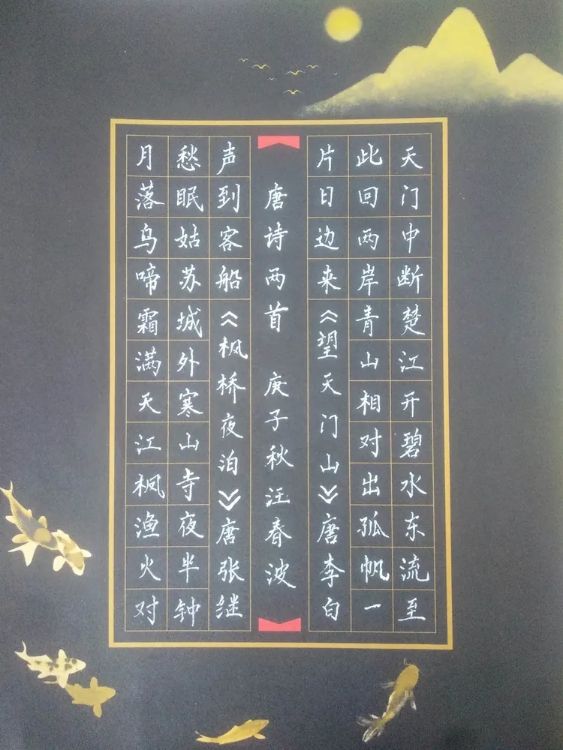 天门中断楚江开碧水东流至
此回两岸青山相对出孤帆一
片日边来《望天门山》唐李白
唐诗两首 庚子秋汪春波
月落乌啼霜满天江枫渔火对
愁眠姑苏城外寒山寺夜半钟
声到客船《枫桥夜泊》唐张继